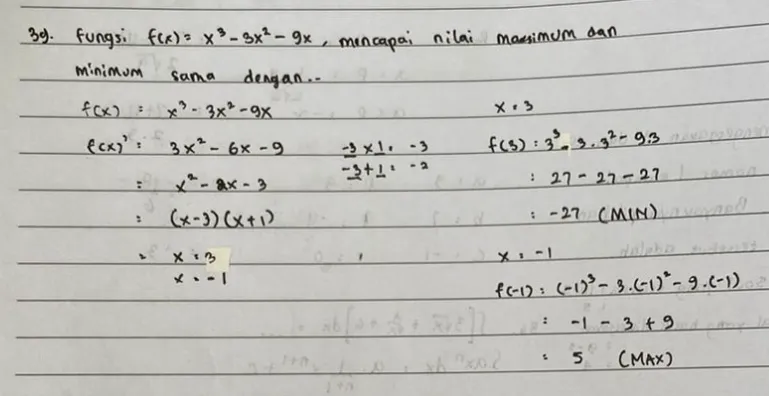 39. Fungsi f(x) = x³ - 3x² - 9x, mencapai nilai maxsimum dan
minimum sama dengan...
f(x) = x³ - 3x² - 9x
f(x)' = 3x² - 6x - 9
= x² - 2x - 3
= (x-3)(x+1)
= x = 3
x = -1
-3 x 1 = -3
-3 + 1 = -2
x = 3
f(3) = 3³ - 3 . 3² - 9.3
= 27 - 27 - 27
= -27 (MIN)
x = -1
f(-1) = (-1)³ - 3.(-1)² - 9.(-1)
= -1 - 3 + 9
= 5 (MAX)